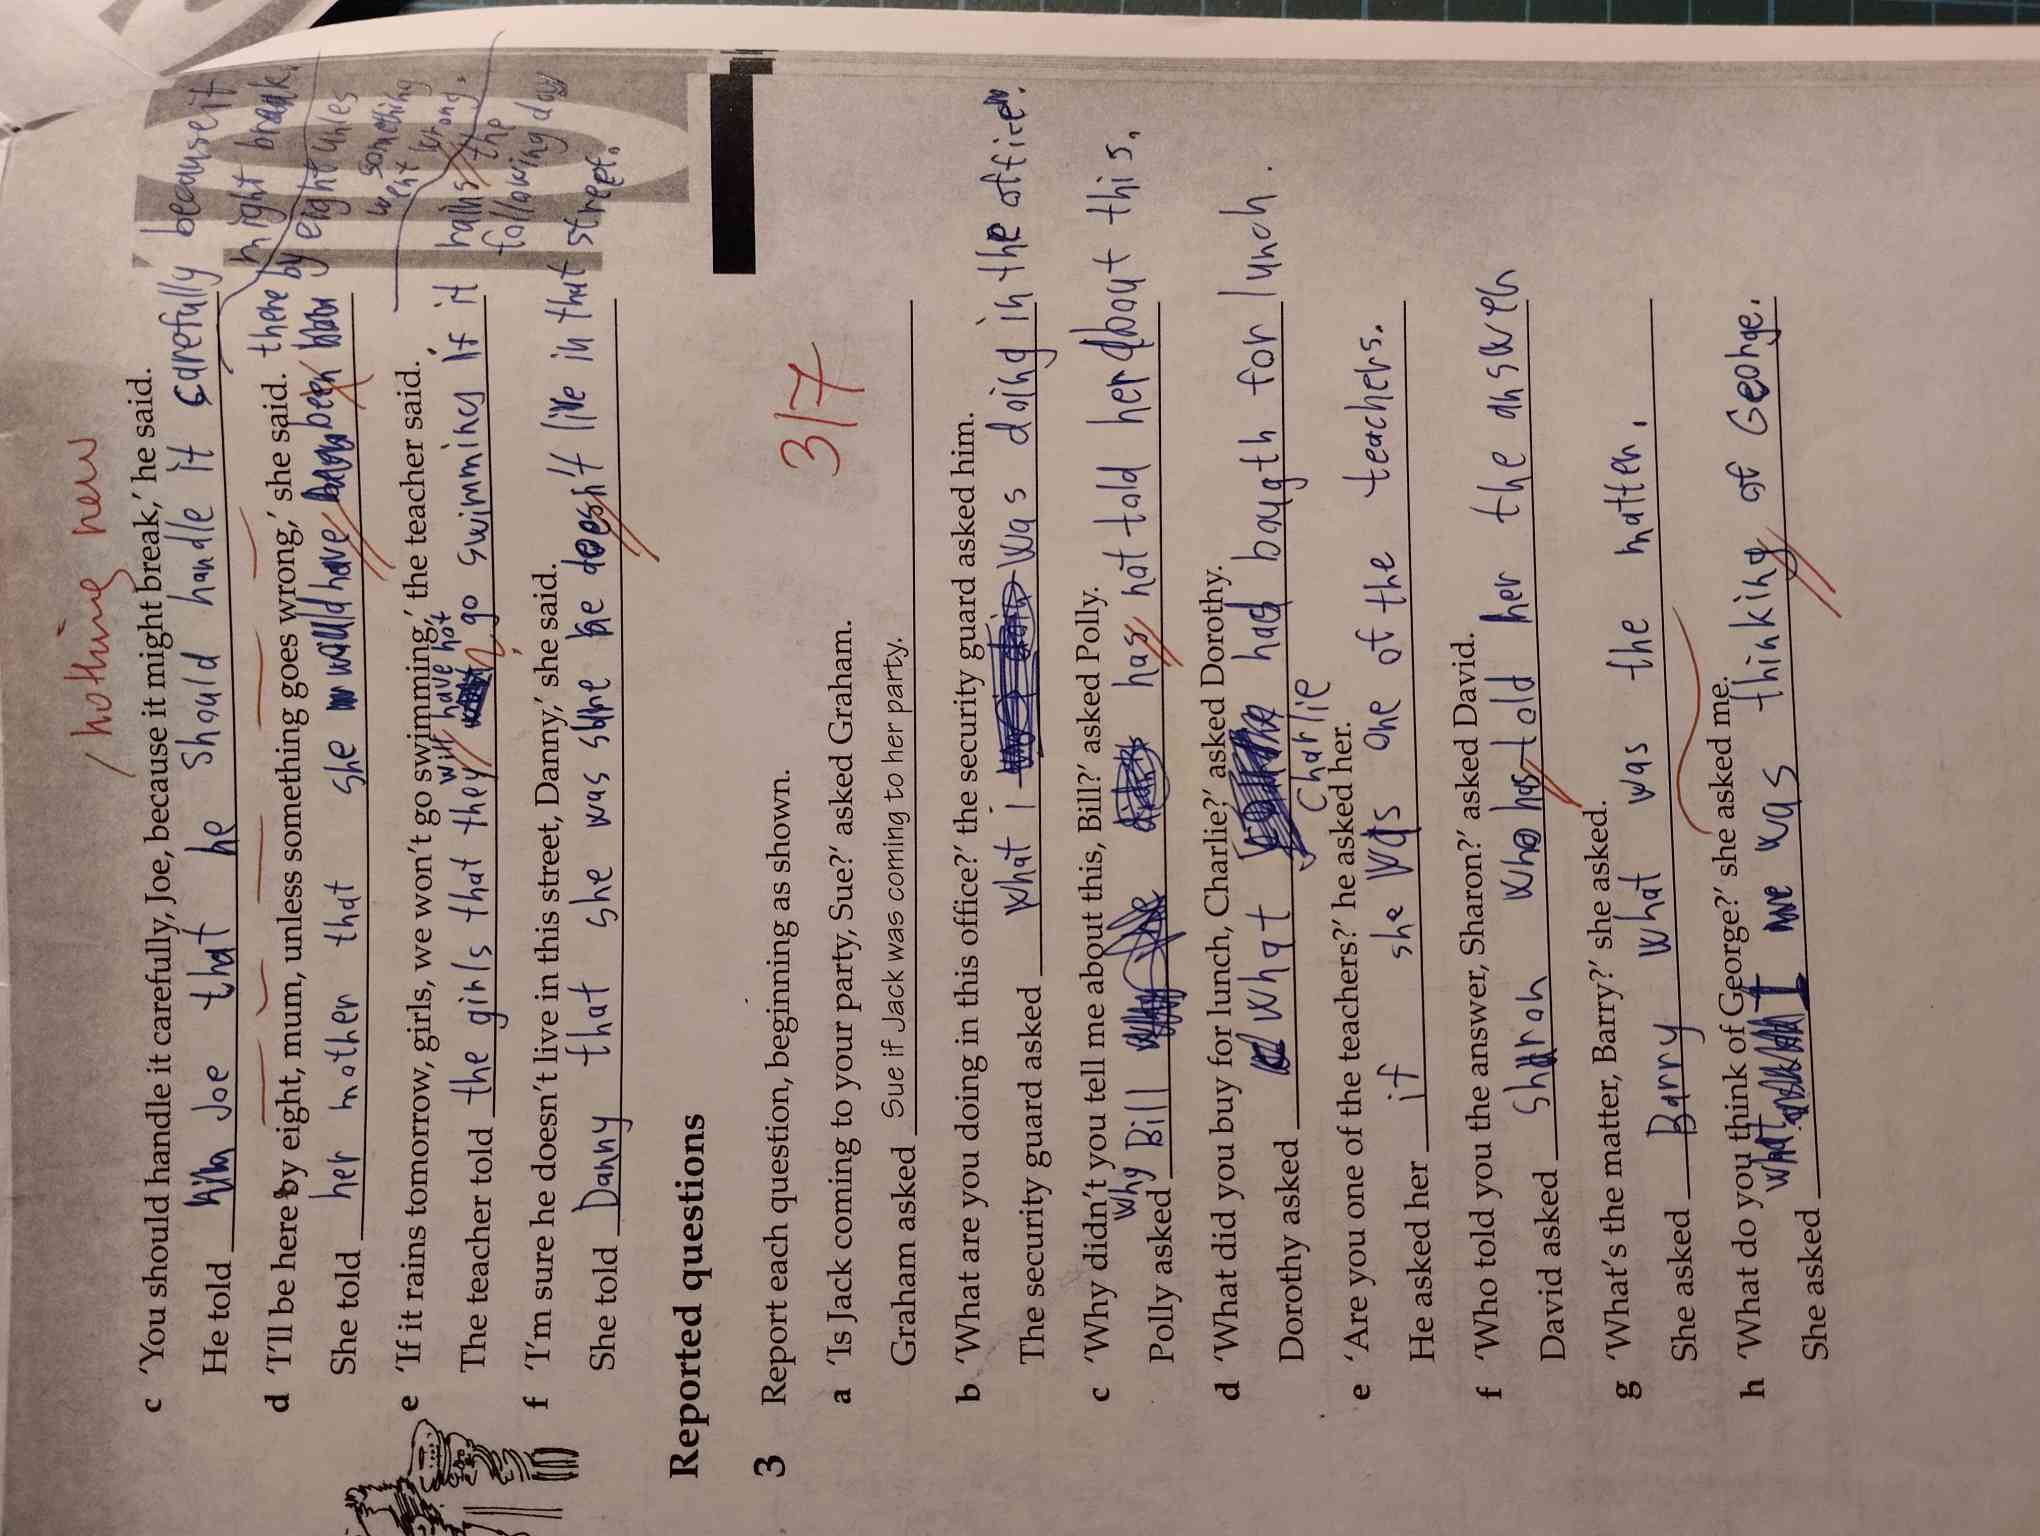 nothing new
c 'You should handle it carefully, Joe, because it might break,' he said.
He told Joe that he should handle it carefully because it
might break.
d 'I'll be here by eight, mum, unless something goes wrong,' she said. there
by eight unles
She told her mother that she would have been
something
went wrong.
e 'If it rains tomorrow, girls, we won't go swimming,' the teacher said.
will have not
The teacher told the girls that they go swimming if it rains the
following day
f 'I'm sure he doesn't live in this street, Danny,' she said.
She told Danny that she was sure he doesn't live in that street.
Reported questions
3 Report each question, beginning as shown.
3/7
a 'Is Jack coming to your party, Sue?' asked Graham.
Graham asked Sue if Jack was coming to her party.
b 'What are you doing in this office?' the security guard asked him.
The security guard asked what i was doing in the office.
c 'Why didn't you tell me about this, Bill?' asked Polly.
why
Polly asked Bill has not told her about this.
d 'What did you buy for lunch, Charlie?' asked Dorothy.
Dorothy asked what had bougth for lunch.
Charlie
e 'Are you one of the teachers?' he asked her.
He asked her if she was one of the teachers.
f 'Who told you the answer, Sharon?' asked David.
David asked sharon who has told her the answer
g 'What's the matter, Barry?' she asked.
She asked Barry what was the matter.
h 'What do you think of George?' she asked me.
She asked what I was thinking of George.